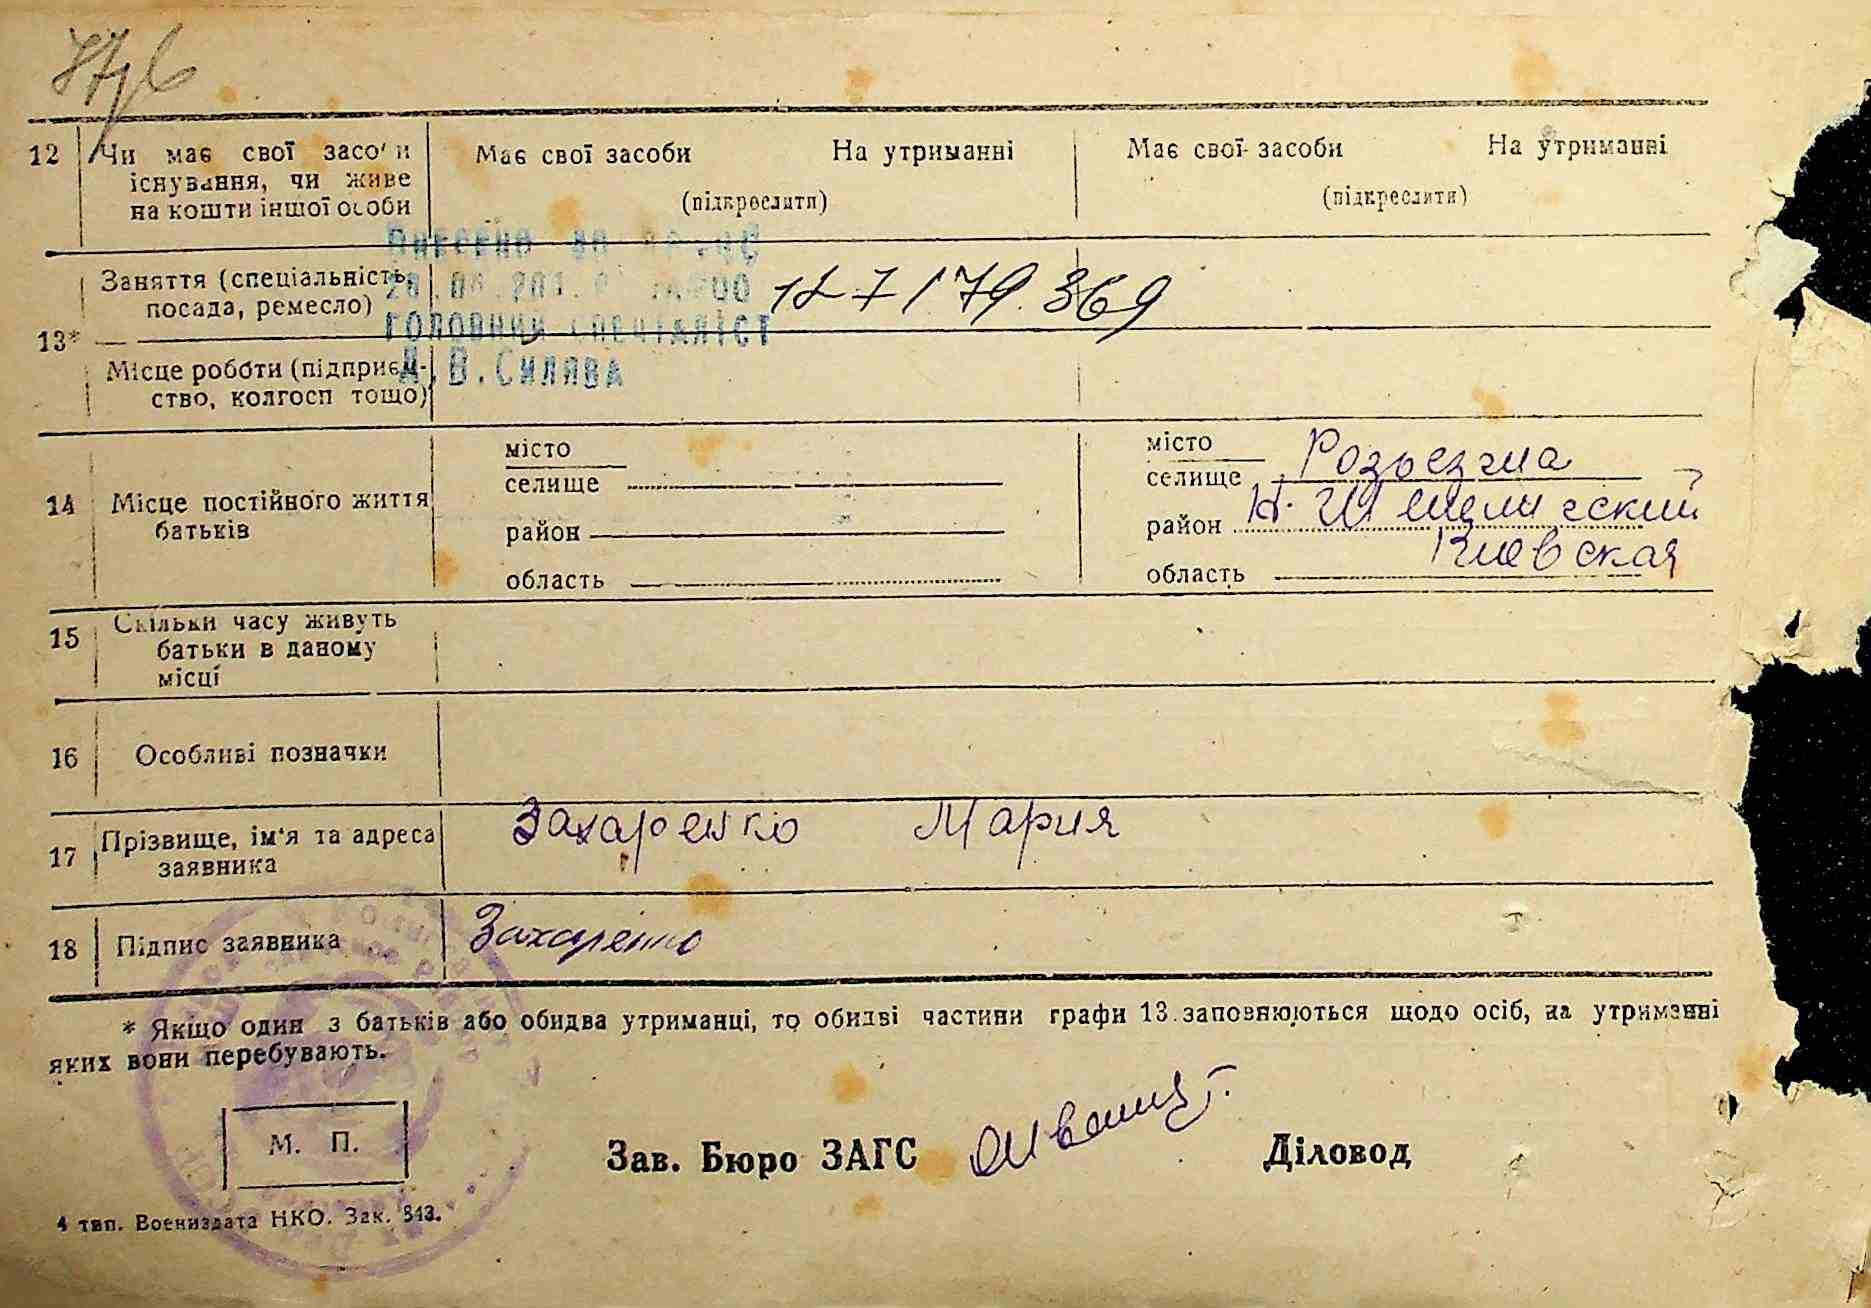 12 Чи має свої засоби Має свої засоби На утриманні Має свої засоби На утриманні
існування, чи живе
на кошти іншої особи (підкреслити) (підкреслити)
Заняття (спеціальність,
посада, ремесло) 127179369
головний спеціаліст
13*
Місце роботи (підприєм-
В. Силява
ство, колгосп тощо)
місто місто
селище селище Розьезчиа
14 Місце постійного життя
батьків
район район
область область Киевская
15 Скільки часу живуть
батьки в даному
місці
16 Особливі позначки
17 Прізвище, ім'я та адреса
заявника Захаренко Мария
18 Підпис заявника Захаренко
* Якщо один з батьків або обидва утриманці, то обидві частини графи 13 заповнюються щодо осіб, на утриманні
яких вони перебувають.
М. П.
Зав. Бюро ЗАГС Діловод
4 тип. Воениздата НКО. Зак. 843.